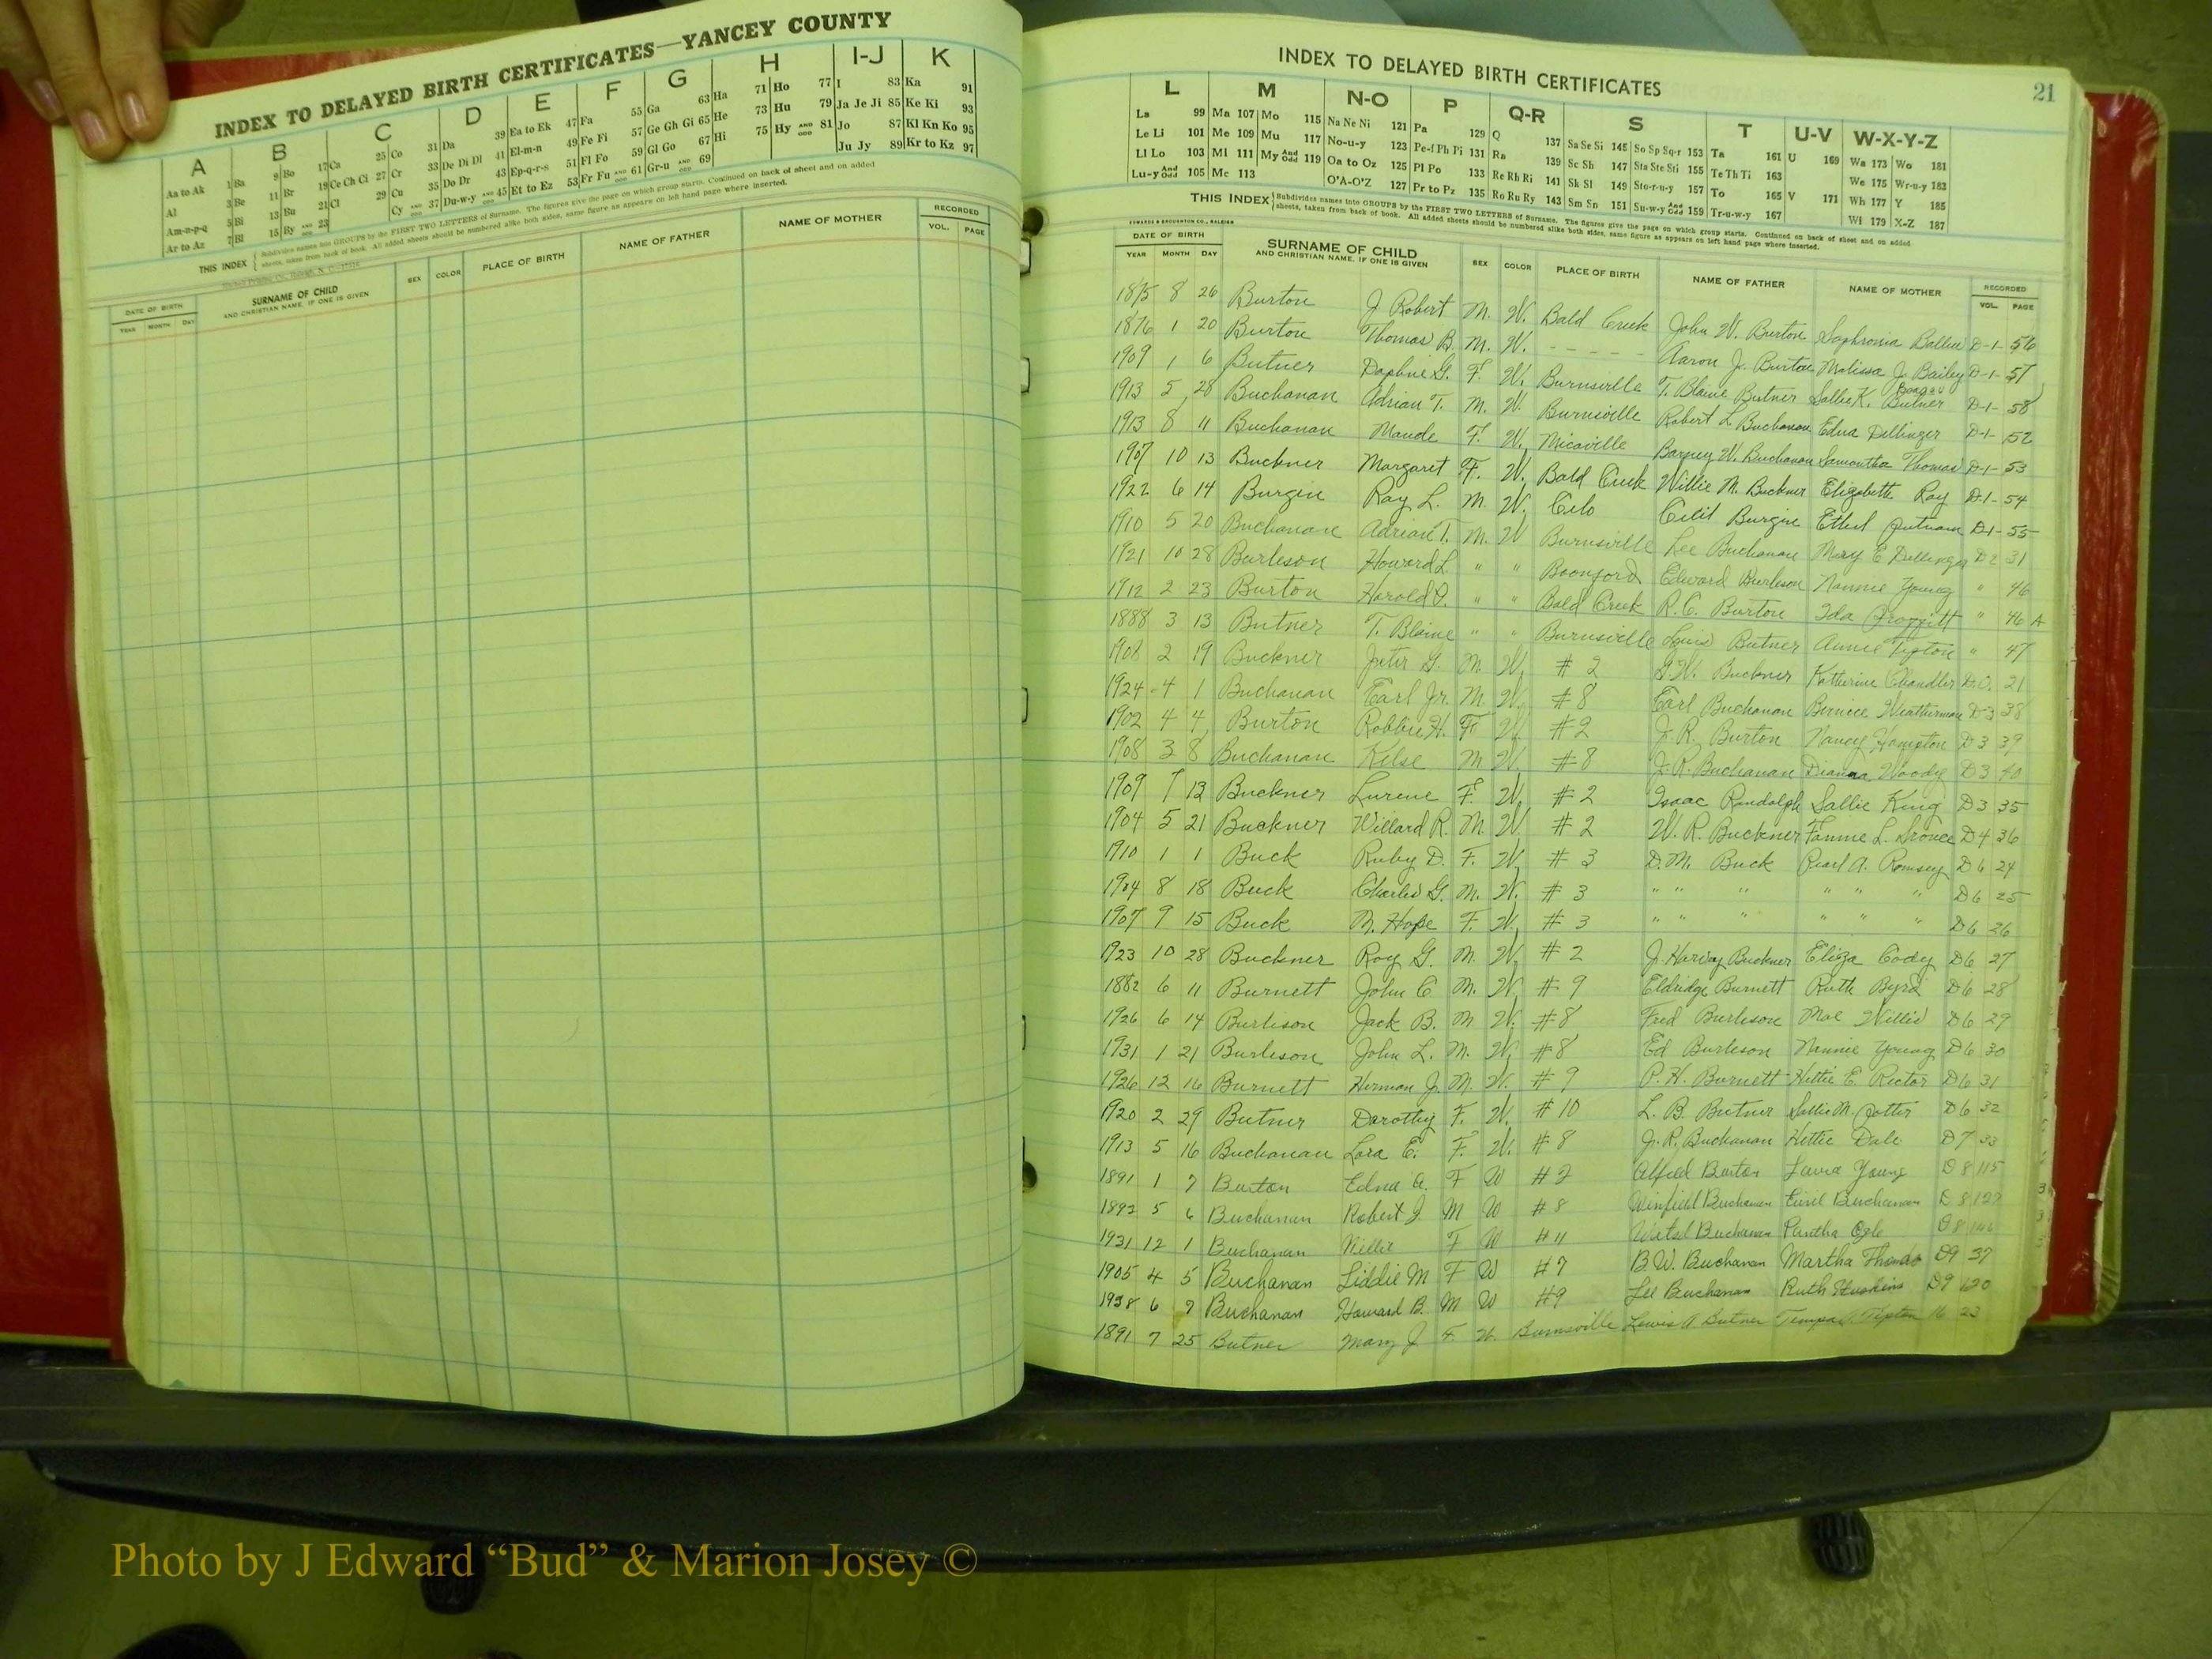 INDEX TO DELAYED BIRTH CERTIFICATES—YANCEY COUNTY
A B C D E F G H I-J K
Aa to Ak 1 Ba 9 Bo 17 Ca 25 Co 31 Da 39 Ea to Ek 47 Fa 55 Ga 63 Ha 71 Ho 77 I 83 Ka 91
Al 3 Be 11 Br 19 Ce Ch Ci 27 Cr 33 De Di Dl 41 El-m-n 49 Fe Fi 57 Ge Gh Gi 65 He 73 Hu 79 Ja Je Ji 85 Ke Ki 93
Am-n-p-q 5 Bi 13 Bu 21 Cl 29 Cu 35 Do Dr 43 Ep-q-r-s 51 Fl Fo 59 Gl Go 67 Hi 75 Hy AND ODD 81 Jo 87 Kl Kn Ko 95
Ar to Az 7 Bl 15 By AND ODD 23 Cy AND ODD 37 Du-w-y AND ODD 45 Et to Ez 53 Fr Fu AND ODD 61 Gr-u AND ODD 69 Ju Jy 89 Kr to Kz 97
THIS INDEX { Subdivides names into GROUPS by the FIRST TWO LETTERS of Surname. The figures give the page on which group starts. Continued on back of sheet and on added
sheets, taken from back of book. All added sheets should be numbered alike both sides, same figure as appears on left hand page where inserted.
DATE OF BIRTH SURNAME OF CHILD SEX COLOR PLACE OF BIRTH NAME OF FATHER NAME OF MOTHER RECORDED
YEAR MONTH DAY AND CHRISTIAN NAME, IF ONE IS GIVEN VOL. PAGE
INDEX TO DELAYED BIRTH CERTIFICATES 21
L M N-O P Q-R S T U-V W-X-Y-Z
La 99 Ma 107 Mo 115 Na Ne Ni 121 Pa 129 Q 137 Sa Se Si 145 So Sp Sq-r 153 Ta 161 U 169 Wa 173 Wo 181
Le Li 101 Me 109 Mu 117 No-u-y 123 Pe-f Ph Pi 131 Ra 139 Sc Sh 147 Sta Ste Sti 155 Te Th Ti 163 We 175 Wr-u-y 183
Ll Lo 103 Mi 111 My And Odd 119 Oa to Oz 125 Pl Po 133 Re Rh Ri 141 Sk Sl 149 Sto-r-u-y 157 To 165 V 171 Wh 177 Y 185
Lu-y And Odd 105 Mc 113 O'A-O'Z 127 Pr to Pz 135 Ro Ru Ry 143 Sm Sn 151 Su-w-y And Odd 159 Tr-u-w-y 167 Wi 179 X-Z 187
THIS INDEX { Subdivides names into GROUPS by the FIRST TWO LETTERS of Surname. The figures give the page on which group starts. Continued on back of sheet and on added
sheets, taken from back of book. All added sheets should be numbered alike both sides, same figure as appears on left hand page where inserted.
EDWARDS & BROUGHTON CO., RALEIGH
DATE OF BIRTH SURNAME OF CHILD SEX COLOR PLACE OF BIRTH NAME OF FATHER NAME OF MOTHER RECORDED
YEAR MONTH DAY AND CHRISTIAN NAME, IF ONE IS GIVEN VOL. PAGE
1875 8 26 Burton J Robert M. W. Bald Creek John W. Burton Sophronia Ballew D-1- 56
1876 1 20 Burton Thomas B. M. W. - - - - - Aaron J. Burton Malissa J. Bailey D-1- 57
1909 1 6 Butner Daphne G. F. W. Burnsville T. Blaine Butner Sallie K. Butner D-1- 58
1913 5 28 Buchanan Adrian T. M. W. Burnsville Robert L. Buchanan Edna Dellinger D-1- 52
1913 8 11 Buchanan Maude F. W. Micaville Barney W. Buchanan Samantha Thomas D-1- 53
1907 10 13 Buckner Margaret F. W. Bald Creek Willie M. Buckner Elizabeth Ray D-1- 54
1922 6 14 Burgin Ray L. M. W. Celo Burgin Ethel Putnam D-1- 55
1910 5 20 Buchanan Adrian T. M. W Burnsville Lee Buchanan Mary E Dellinger D2 31
1921 10 28 Burleson Howard L. " " Boonford Edward Burleson Nannie Young " 46
1912 2 23 Burton Harold " " Bald Creek R.C. Burton Ida Proffitt " 46 A
1888 3 13 Butner T. Blaine " " Burnsville Louis Butner Annie Tipton " 47
1908 2 19 Buckner Jeter G. M. W. # 2 G.W. Buckner Katherine Chandler 21
1924 4 1 Buchanan Earl Jr. M. W. #8 Earl Buchanan Bernice Weatherman D3 38
1902 4 4 Burton Robbie H. F W #2 J.R. Burton Nancy Hampton D3 39
1908 3 8 Buchanan Kelse M W. #8 J.R. Buchanan Dianna Woody D3 40
1909 7 13 Buckner Lurene F. W. #2 Isaac Randolph Sallie King D3 35
1904 5 21 Buckner Willard R. M. W. #2 W.R. Buckner Fannie L. D4 36
1910 1 1 Buck Ruby D. F. W. # 3 D.M. Buck Pearl A. Ramsey D6 24
1904 8 18 Buck Charles G. M. W. # 3 " " " " " " D6 25
1907 9 15 Buck M. Hope F. W. # 3 " " " " " " D6 26
1923 10 28 Buckner Roy G. M. W. # 2 J. Harvey Buckner Eliza Cody D6 27
1882 6 11 Burnett John C M. W. # 9 Eldridge Burnett Ruth Byrd D6 28
1926 6 14 Burleson Jack B. M W. #8 Fred Burleson Mae Willis D6 29
1931 1 21 Burleson John L. M. W. #8 Ed Burleson Nannie Young D6 30
1926 12 16 Burnett Herman J. M. W. # 9 P.H. Burnett Hettie E. Rector D6 31
1920 2 29 Butner Dorothy F. W. # 10 L. B. Butner Sallie M. Potter D6 32
1913 5 16 Buchanan Lora E. F. W. # 8 J.R. Buchanan Hettie Dale D7 33
1891 1 7 Burton Edna A. F W #2 Alfred Burton Young D8 115
1892 5 6 Buchanan Robert J. M W #8 Winfield Buchanan Buchanan D 8
1931 12 1 Buchanan Nellie F W #11 Buchanan D8
1905 4 5 Buchanan Liddie M F W #7 B.W. Buchanan Martha Thomas D9 37
1938 6 7 Buchanan Howard B. M W #9 Lee Buchanan Ruth D9
1891 7 25 Butner Mary J F. W. Burnsville Lewis A Butner Tempa Tipton 16 23
Photo by J Edward “Bud” & Marion Josey ©